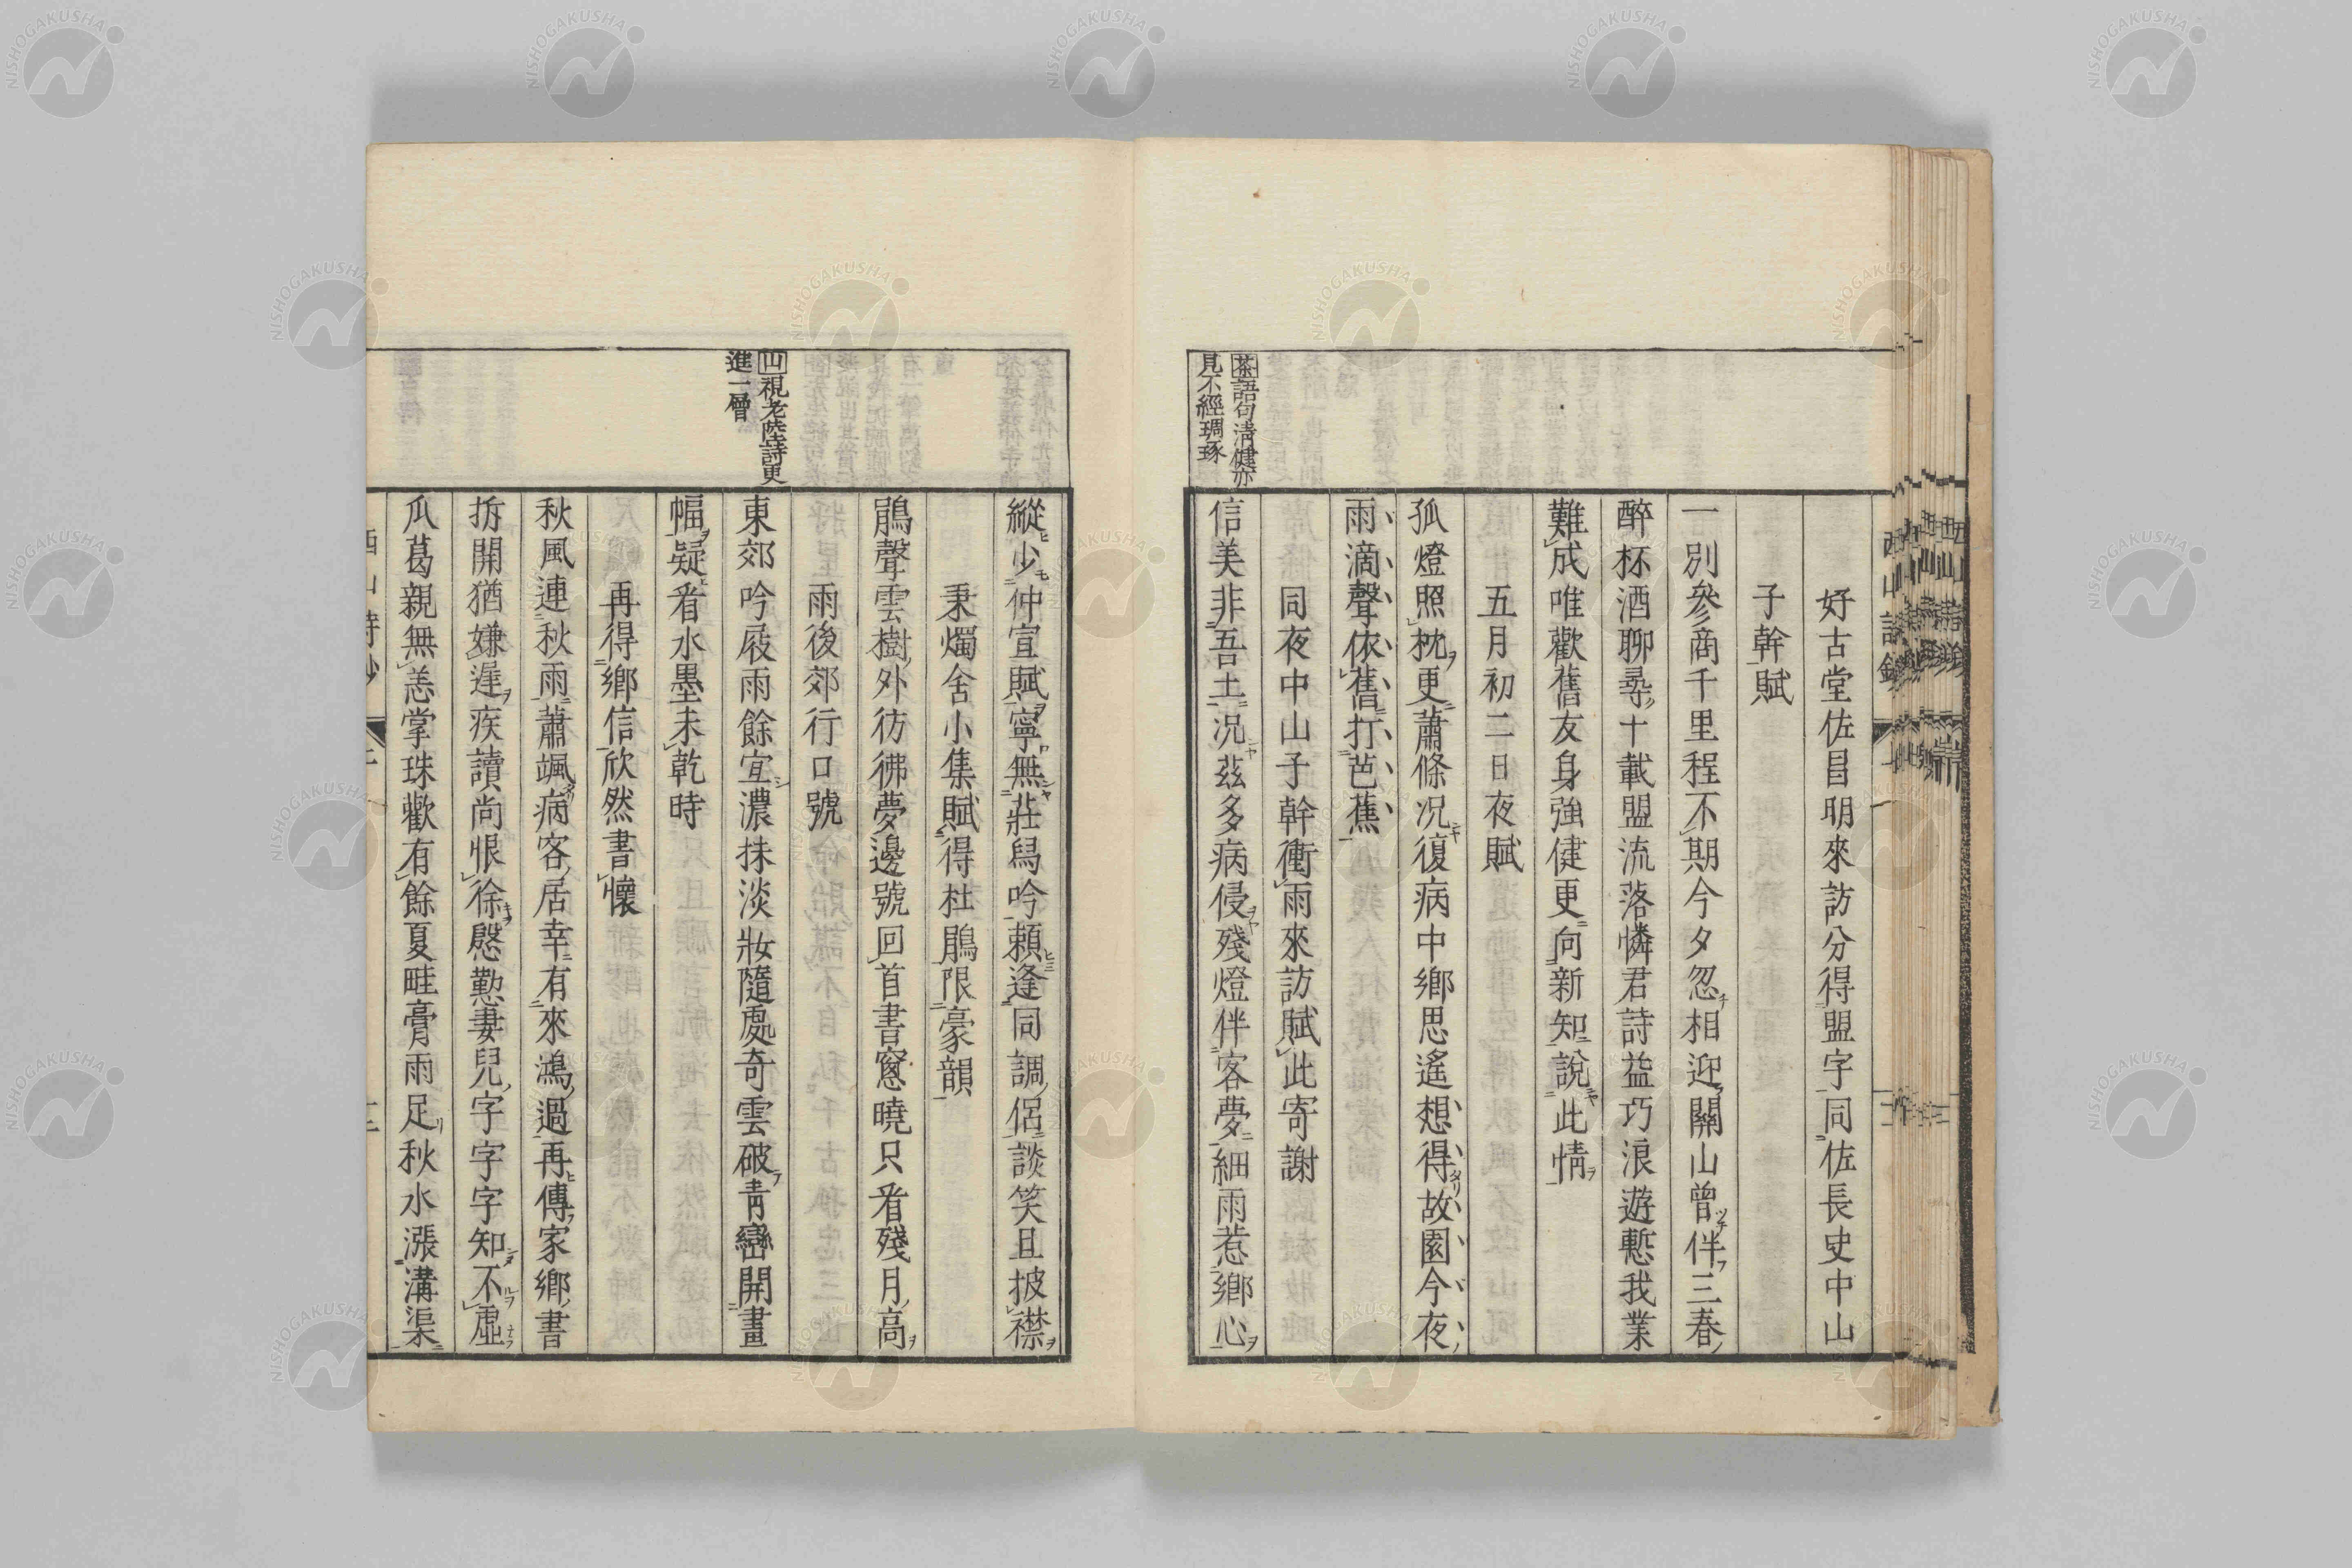 好古堂佐昌明來訪分得盟字同佐長史中山
子幹賦
一別參商千里程不期今夕忽相迎關山曾伴三春
醉杯酒聊尋十載盟流落憐君詩益巧浪遊慙我業
難成唯歡舊友身強健更向新知說此情
五月初二日夜賦
孤燈照枕更蕭條況復病中鄉思遙想得故園今夜
雨滴聲依舊打芭蕉
同夜中山子幹衝雨來訪賦此寄謝
信美非吾土況茲多病侵殘燈伴客夢細雨惹鄉心
茶語句淸健亦
見不經琱琢
縱少仲宣賦寧無莊舃吟賴逢同調侶談笑且披襟
秉燭舍小集賦得杜鵑限豪韻
鵑聲雲樹外彷彿夢邊號回首書窻曉只看殘月高
雨後郊行口號
東郊吟屐雨餘宜濃抹淡妝隨處奇雲破靑巒開畫
幅疑看水墨未乾時
再得鄉信欣然書懷
秋風連秋雨蕭颯病客居幸有來鴻過再傳家鄉書
拆開猶嫌遲疾讀尚恨徐慇懃妻兒字字字知不虛
瓜葛親無恙掌珠歡有餘夏畦膏雨足秋水漲溝渠
四視老陸詩更
進一層
西山詩鈔
NISHOGAKUSHA